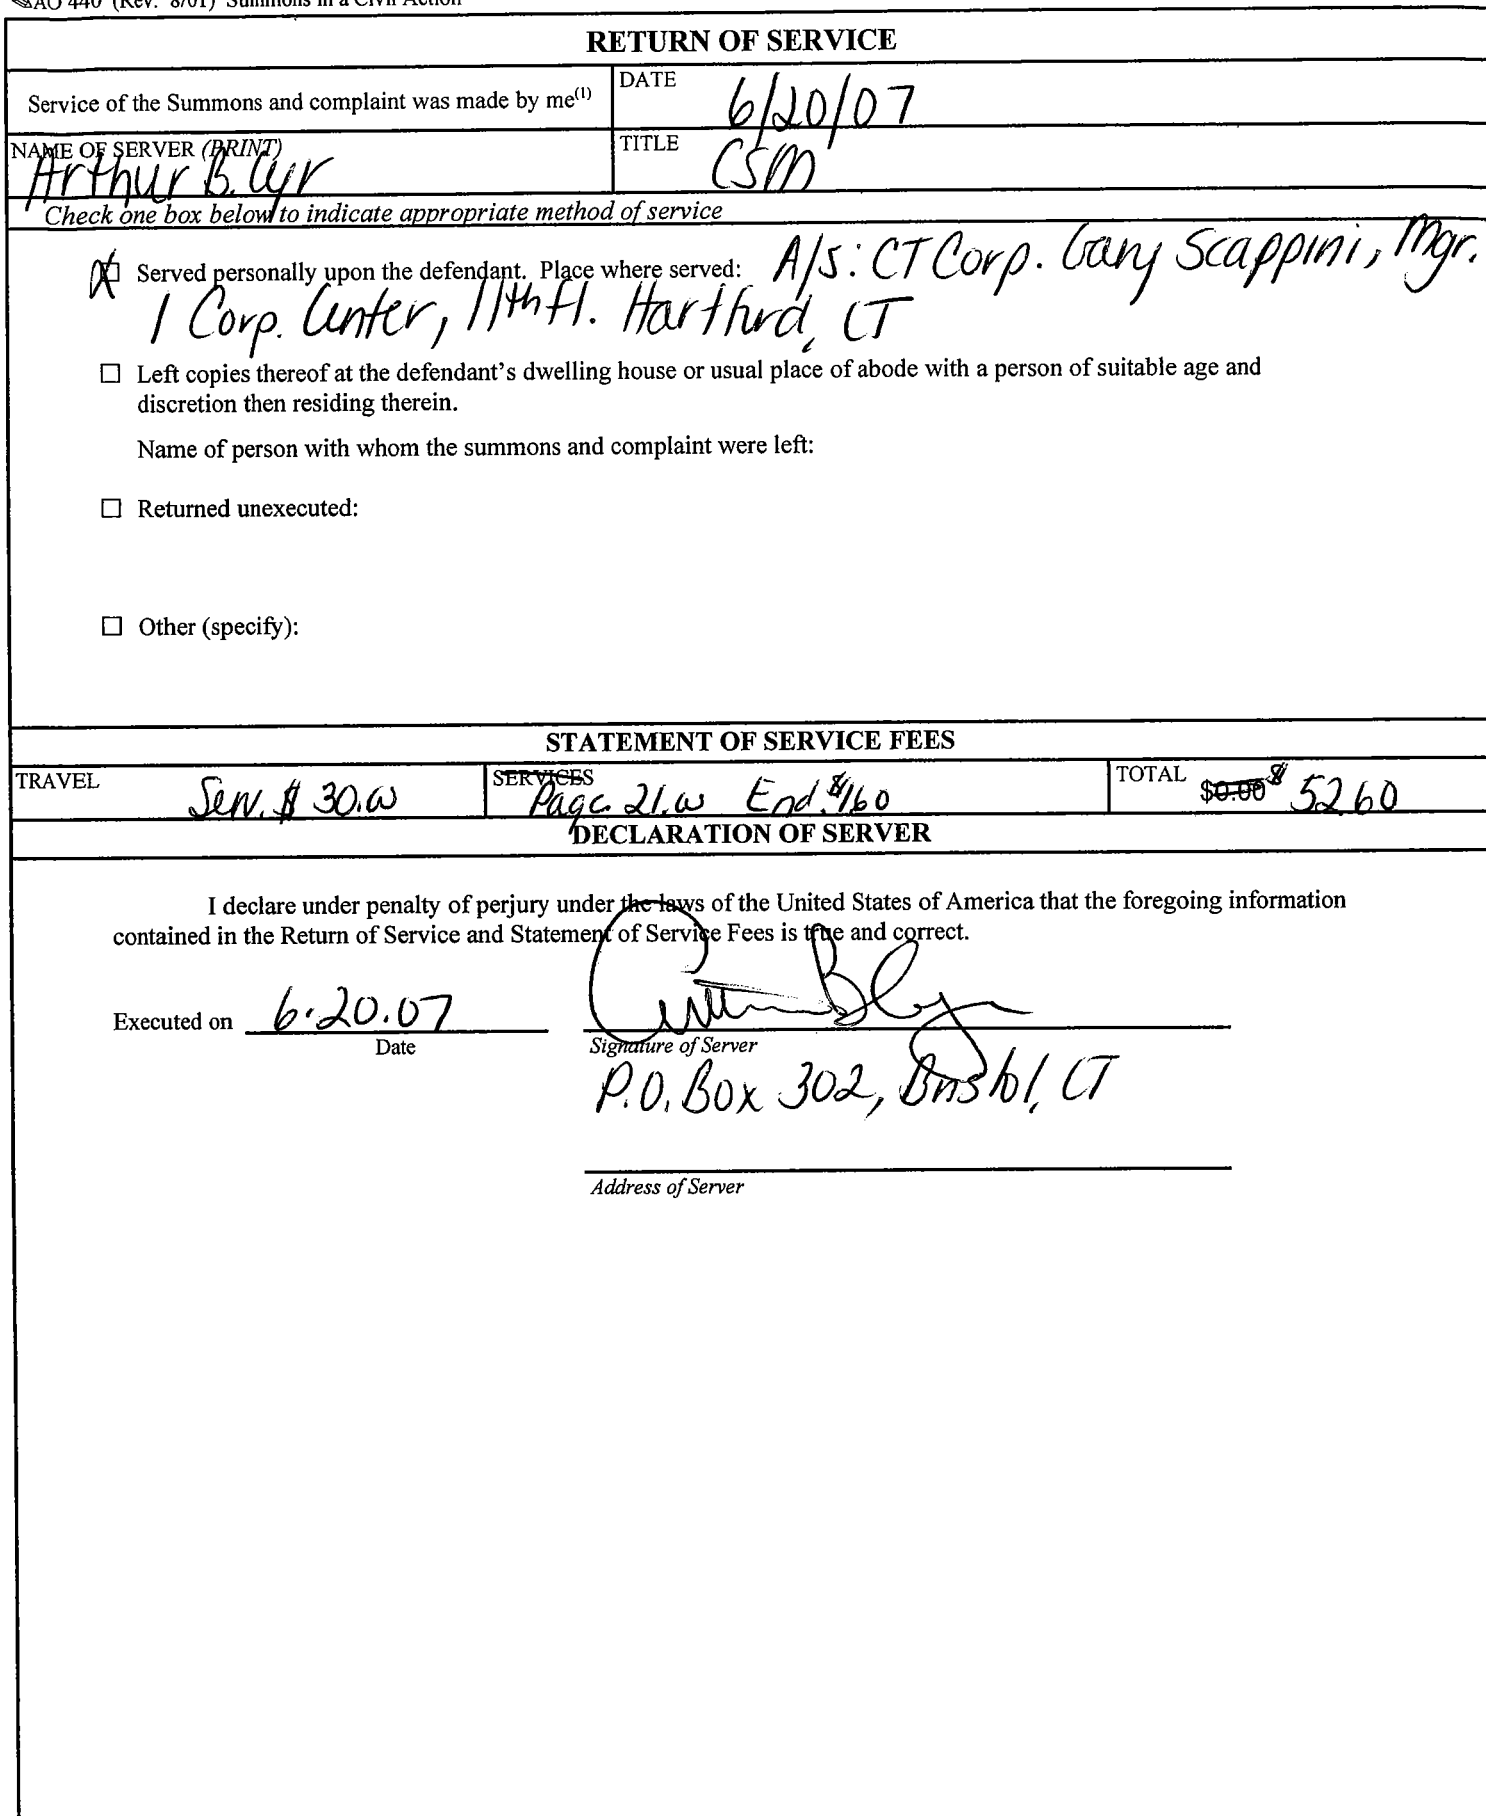 AO 440 (Rev. 8/01) Summons in a Civil Action
RETURN OF SERVICE
Service of the Summons and complaint was made by me(1)
DATE
6/20/07
NAME OF SERVER (PRINT)
Arthur B. Cyr
TITLE
CSM
Check one box below to indicate appropriate method of service
X ☐ Served personally upon the defendant. Place where served: A/S: CT Corp. Gary Scappini, Mgr.
1 Corp. Center, 11th Fl. Hartford, CT
☐ Left copies thereof at the defendant's dwelling house or usual place of abode with a person of suitable age and
discretion then residing therein.
Name of person with whom the summons and complaint were left:
☐ Returned unexecuted:
☐ Other (specify):
STATEMENT OF SERVICE FEES
TRAVEL
Serv. $ 30.00
SERVICES
Page. 21.00 End. $1.60
TOTAL
$0.00 $ 52.60
DECLARATION OF SERVER
I declare under penalty of perjury under the laws of the United States of America that the foregoing information
contained in the Return of Service and Statement of Service Fees is true and correct.
Executed on 6.20.07
Date
Arthur B Cyr
Signature of Server
P.O. Box 302, Bristol, CT
Address of Server